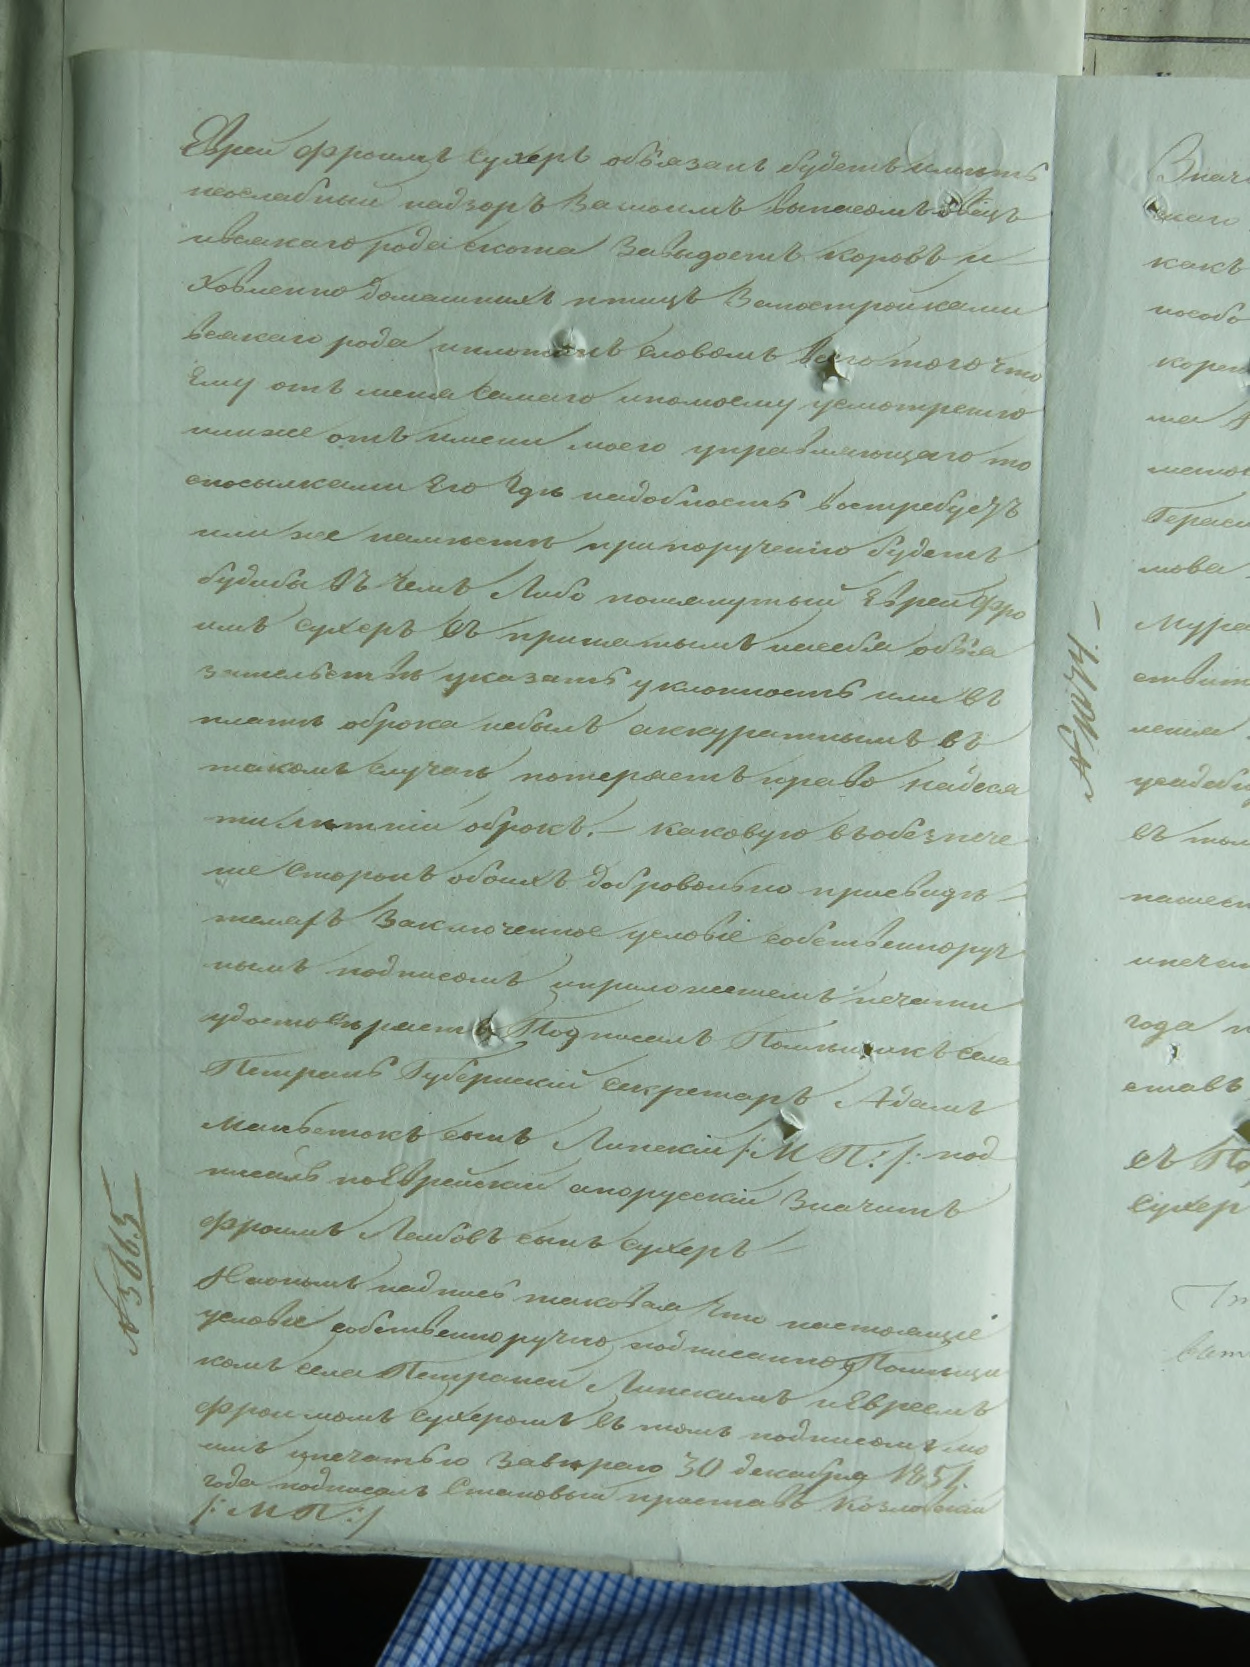 Еврей Фроимъ Сухеръ объязанъ будетъ иметь
неослабный надзоръ за моимъ выпасомъ овецъ
и всякаго рода скота за выдоемъ коровъ и
домашнихъ птицъ за постройками
всякаго рода словомъ всего того что
Ему отъ меня самаго и по моему усмотренію
или же отъ имени моего управляющаго то
с посылками Его где надобность востребуетъ
или же по припорученію будетъ
буде бы въ чемъ либо помянутый Еврей Фро
имъ Сухеръ въ принятымъ на себя объя
зательстве указать уклонность или въ
плате оброка небылъ аккуратнымъ въ
такомъ случае потеряетъ право на деся
тилетній оброкъ. — каковую въ обезпече
ніе сторонъ обоихъ добровольно при свиде
теляхъ заключенное условіе собственноруч
нымъ подписомъ и приложеніемъ печати
удостоверяемъ Подписалъ Помещикъ села
Петрань Губернскій секретарь Адамъ
сынъ Липскій /: М П :/ под
писалъ по Еврейскій а порусскій значитъ
Фроимъ Лейбовъ сынъ Сухеръ —
На ономъ надпись таковая что настоящіе
условіе собственноручно подписанно Помещи
комъ села Петраней Липскимъ и Евреемъ
Фроимомъ Сухеромъ въ томъ подписомъ мо
имъ и печатью заверяю 30 декабря 1851.
года подписалъ Становый приставъ Козловскій
/: М П :/
№ 3665
Значи
скаго
какъ
пособо
корен
Гераси
мова
Мура
ствит
усадебн
въ том
и печат
года
ставъ
съ По
Сухер